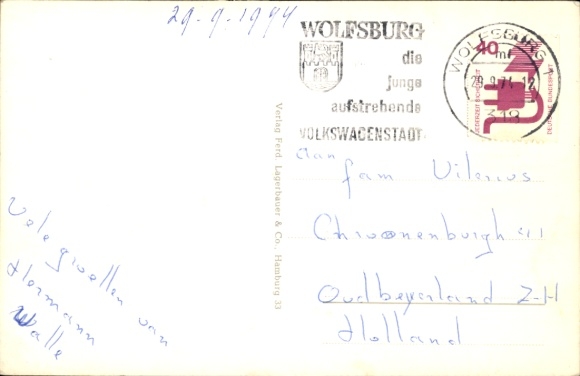 29-9-1974
WOLFSBURG
die
junge
aufstrebende
VOLKSWAGENSTADT
WOLFSBURG 1
mf
29.9.74-12
318
40
JEDERZEIT SICHERHEIT
DEUTSCHE BUNDESPOST
Verlag Ferd. Lagerbauer & Co., Hamburg 33
Aan
fam Vilerius
Chroonenburgh 41
Oudbeyerland Z-H
Holland
Vele groetten van
Hermann
Walle